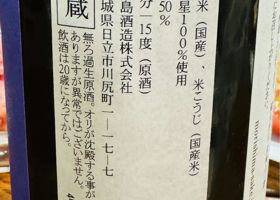 米（国産）、米こうじ（国産米）
星100％使用
50％
分 15度（原酒）
島酒造株式会社
城県日立市川尻町一-一七-七
蔵
無ろ過生原酒。オリが沈殿する事が
ありますが異常ではございません。
飲酒は20歳になってから。